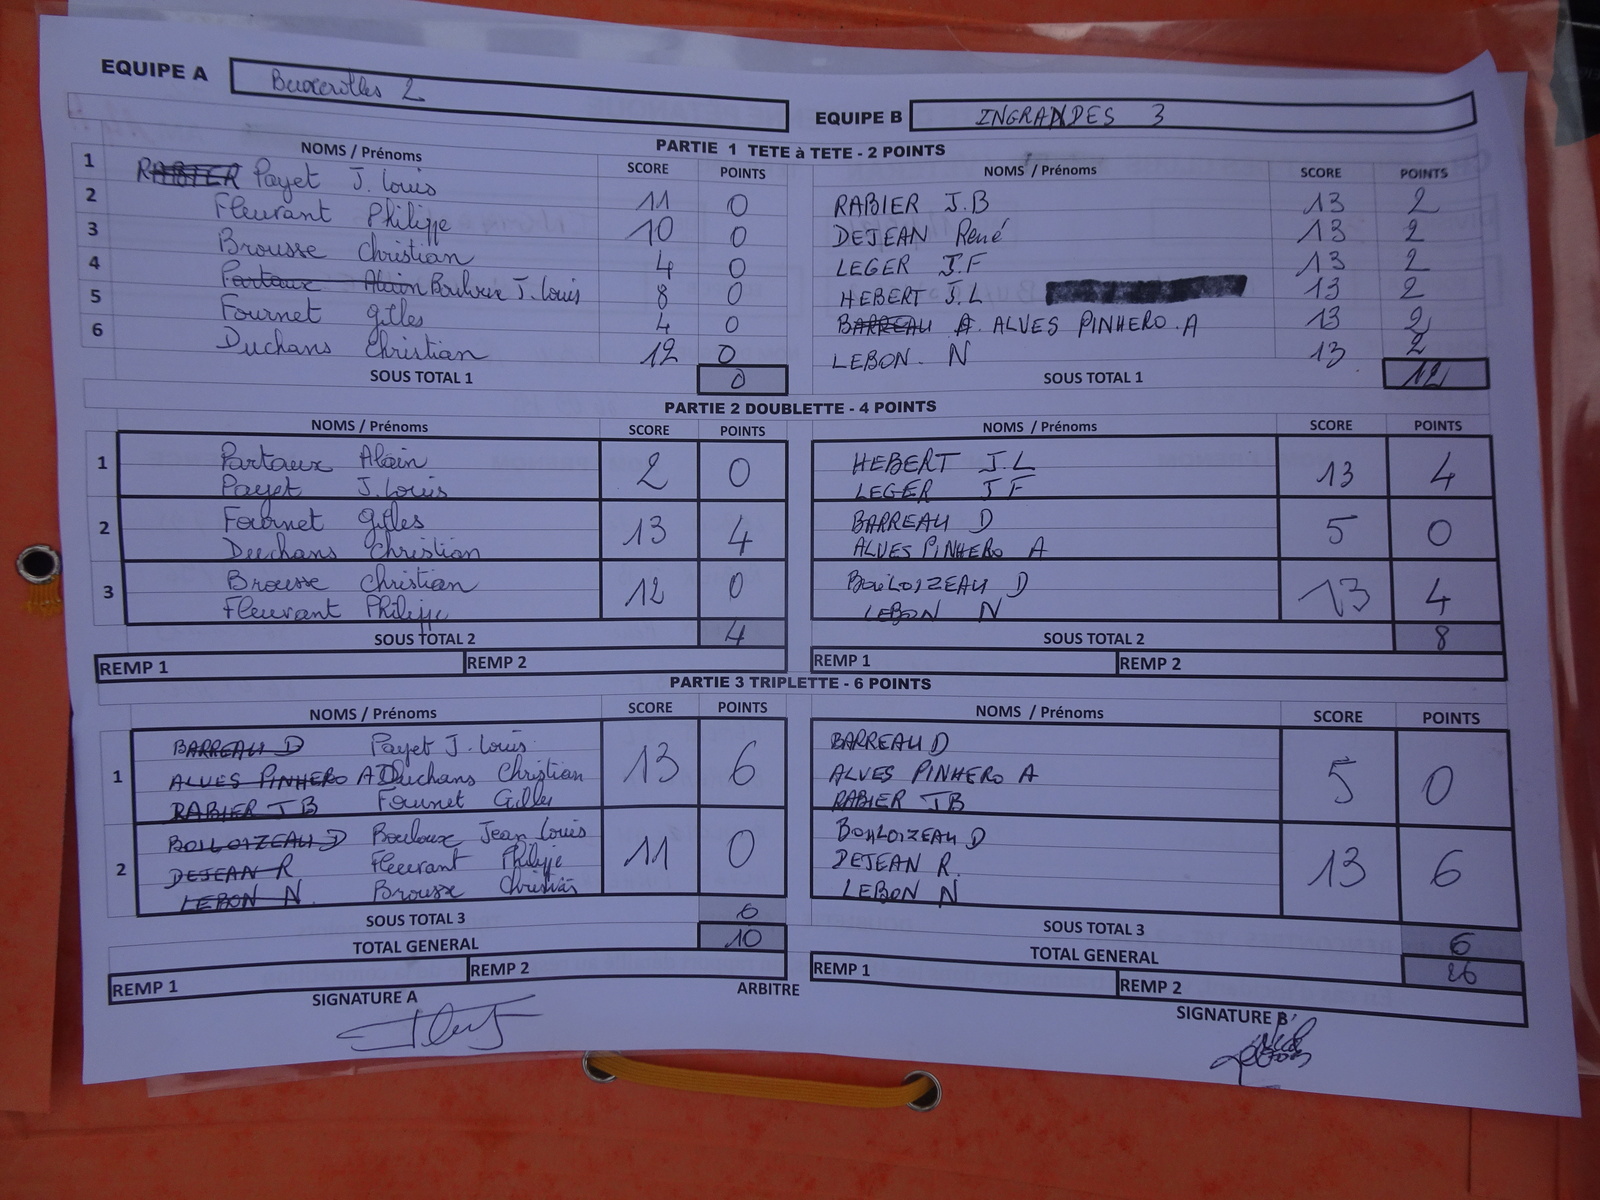 EQUIPE A Buxerolles 2
EQUIPE B INGRANDES 3
PARTIE 1 TETE à TETE - 2 POINTS
NOMS / Prénoms SCORE POINTS NOMS / Prénoms SCORE POINTS
1 RABIER Payet J. Louis 11 0 RABIER J.B 13 2
2 Fleurant Philippe 10 0 DEJEAN René 13 2
3 Brousse Christian 4 0 LEGER J.F 13 2
4 Partaux Alain Bouloux J. Louis 8 0 HEBERT J.L 13 2
5 Fournet Gilles 4 0 BARREAU A. ALVES PINHERO.A 13 2
6 Duchans Christian 12 0 LEBON. N 13 2
SOUS TOTAL 1 0 SOUS TOTAL 1 12
PARTIE 2 DOUBLETTE - 4 POINTS
NOMS / Prénoms SCORE POINTS NOMS / Prénoms SCORE POINTS
1 Partaux Alain 2 0 HEBERT J.L 13 4
Payet J. Louis LEGER J F
2 Fournet Gilles 13 4 BARREAU D 5 0
Duchans Christian ALVES PINHERO A
3 Brousse Christian 12 0 BOULOIZEAU D 13 4
Fleurant Philippe LEBON N
SOUS TOTAL 2 4 SOUS TOTAL 2 8
REMP 1 REMP 2 REMP 1 REMP 2
PARTIE 3 TRIPLETTE - 6 POINTS
NOMS / Prénoms SCORE POINTS NOMS / Prénoms SCORE POINTS
1 BARREAU D Payet J. Louis 13 6 BARREAU D 5 0
ALVES PINHERO A Duchans Christian ALVES PINHERO A
RABIER JB Fournet Gilles RABIER JB
2 BOULOIZEAU D Bouloux Jean Louis 11 0 BOULOIZEAU D 13 6
DEJEAN R Fleurant Philippe DEJEAN R.
LEBON N. Brousse Christian LEBON N
SOUS TOTAL 3 6 SOUS TOTAL 3 6
TOTAL GENERAL 10 TOTAL GENERAL 26
REMP 1 REMP 2 REMP 1 REMP 2
SIGNATURE A ARBITRE SIGNATURE B